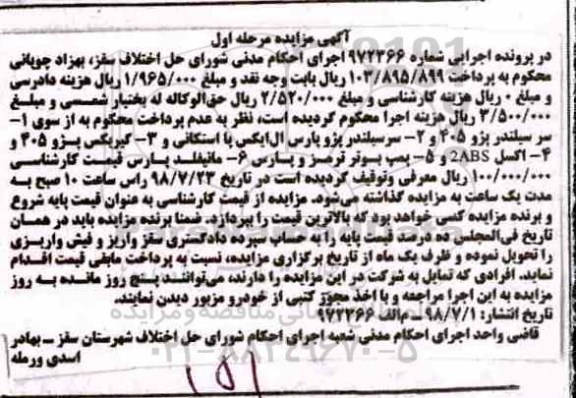 آگهی مزایده مرحله اول
در پرونده اجرایی شماره ۹۷۲۳۶۶ اجرای احکام مدنی شورای حل اختلاف سقز، بهزاد چوپانی
محکوم به پرداخت ۱۰۳/۸۹۵/۸۹۹ ریال بابت وجه نقد و مبلغ ۱/۹۶۵/۰۰۰ ریال هزینه دادرسی
و مبلغ ۰ ریال هزینه کارشناسی و مبلغ ۲/۵۲۰/۰۰۰ ریال حق‌الوکاله له بختیار شمسی و مبلغ
۳/۵۰۰/۰۰۰ ریال هزینه اجرا محکوم گردیده است، نظر به عدم پرداخت محکوم به از سوی ۱–
سر سیلندر پژو ۴۰۵ و ۲– سرسیلندر پژو پارس ال‌ایکس یا استکانی و ۳– گیربکس پژو ۴۰۵ و
۴– اکسل 2ABS و ۵– پمپ بوتر ترمز و پارس ۶– مانیفلد پارس قیمت کارشناسی
۱۰۰/۰۰۰/۰۰۰ ریال معرفی وتوقیف گردیده است در تاریخ ۹۸/۷/۲۳ راس ساعت ۱۰ صبح به
مدت یک ساعت به مزایده گذاشته می‌شود. مزایده از قیمت کارشناسی به عنوان قیمت پایه شروع
و برنده مزایده کسی خواهد بود که بالاترین قیمت را بپردازد. ضمنا برنده مزایده باید در همان
تاریخ فی‌المجلس ده درصد قیمت پایه را به حساب سپرده دادگستری سقز واریز و فیش واریزی
را تحویل نموده و ظرف یک ماه از تاریخ برگزاری مزایده، نسبت به پرداخت مابقی قیمت اقدام
نماید. افرادی که تمایل به شرکت در این مزایده را دارند، می‌توانند پنج روز مانده به روز
مزایده به این اجرا مراجعه و با اخذ مجوز کتبی از خودرو مزبور دیدن نمایند.
تاریخ انتشار: ۹۸/۷/۱ – م‌الف ۹۷۲۳۶۶
قاضی واحد اجرای احکام مدنی شعبه اجرای احکام شورای حل اختلاف شهرستان سقز – بهادر
اسدی ورمله
۰۲۱-۸۸۳۴۹۶۷۰-۵